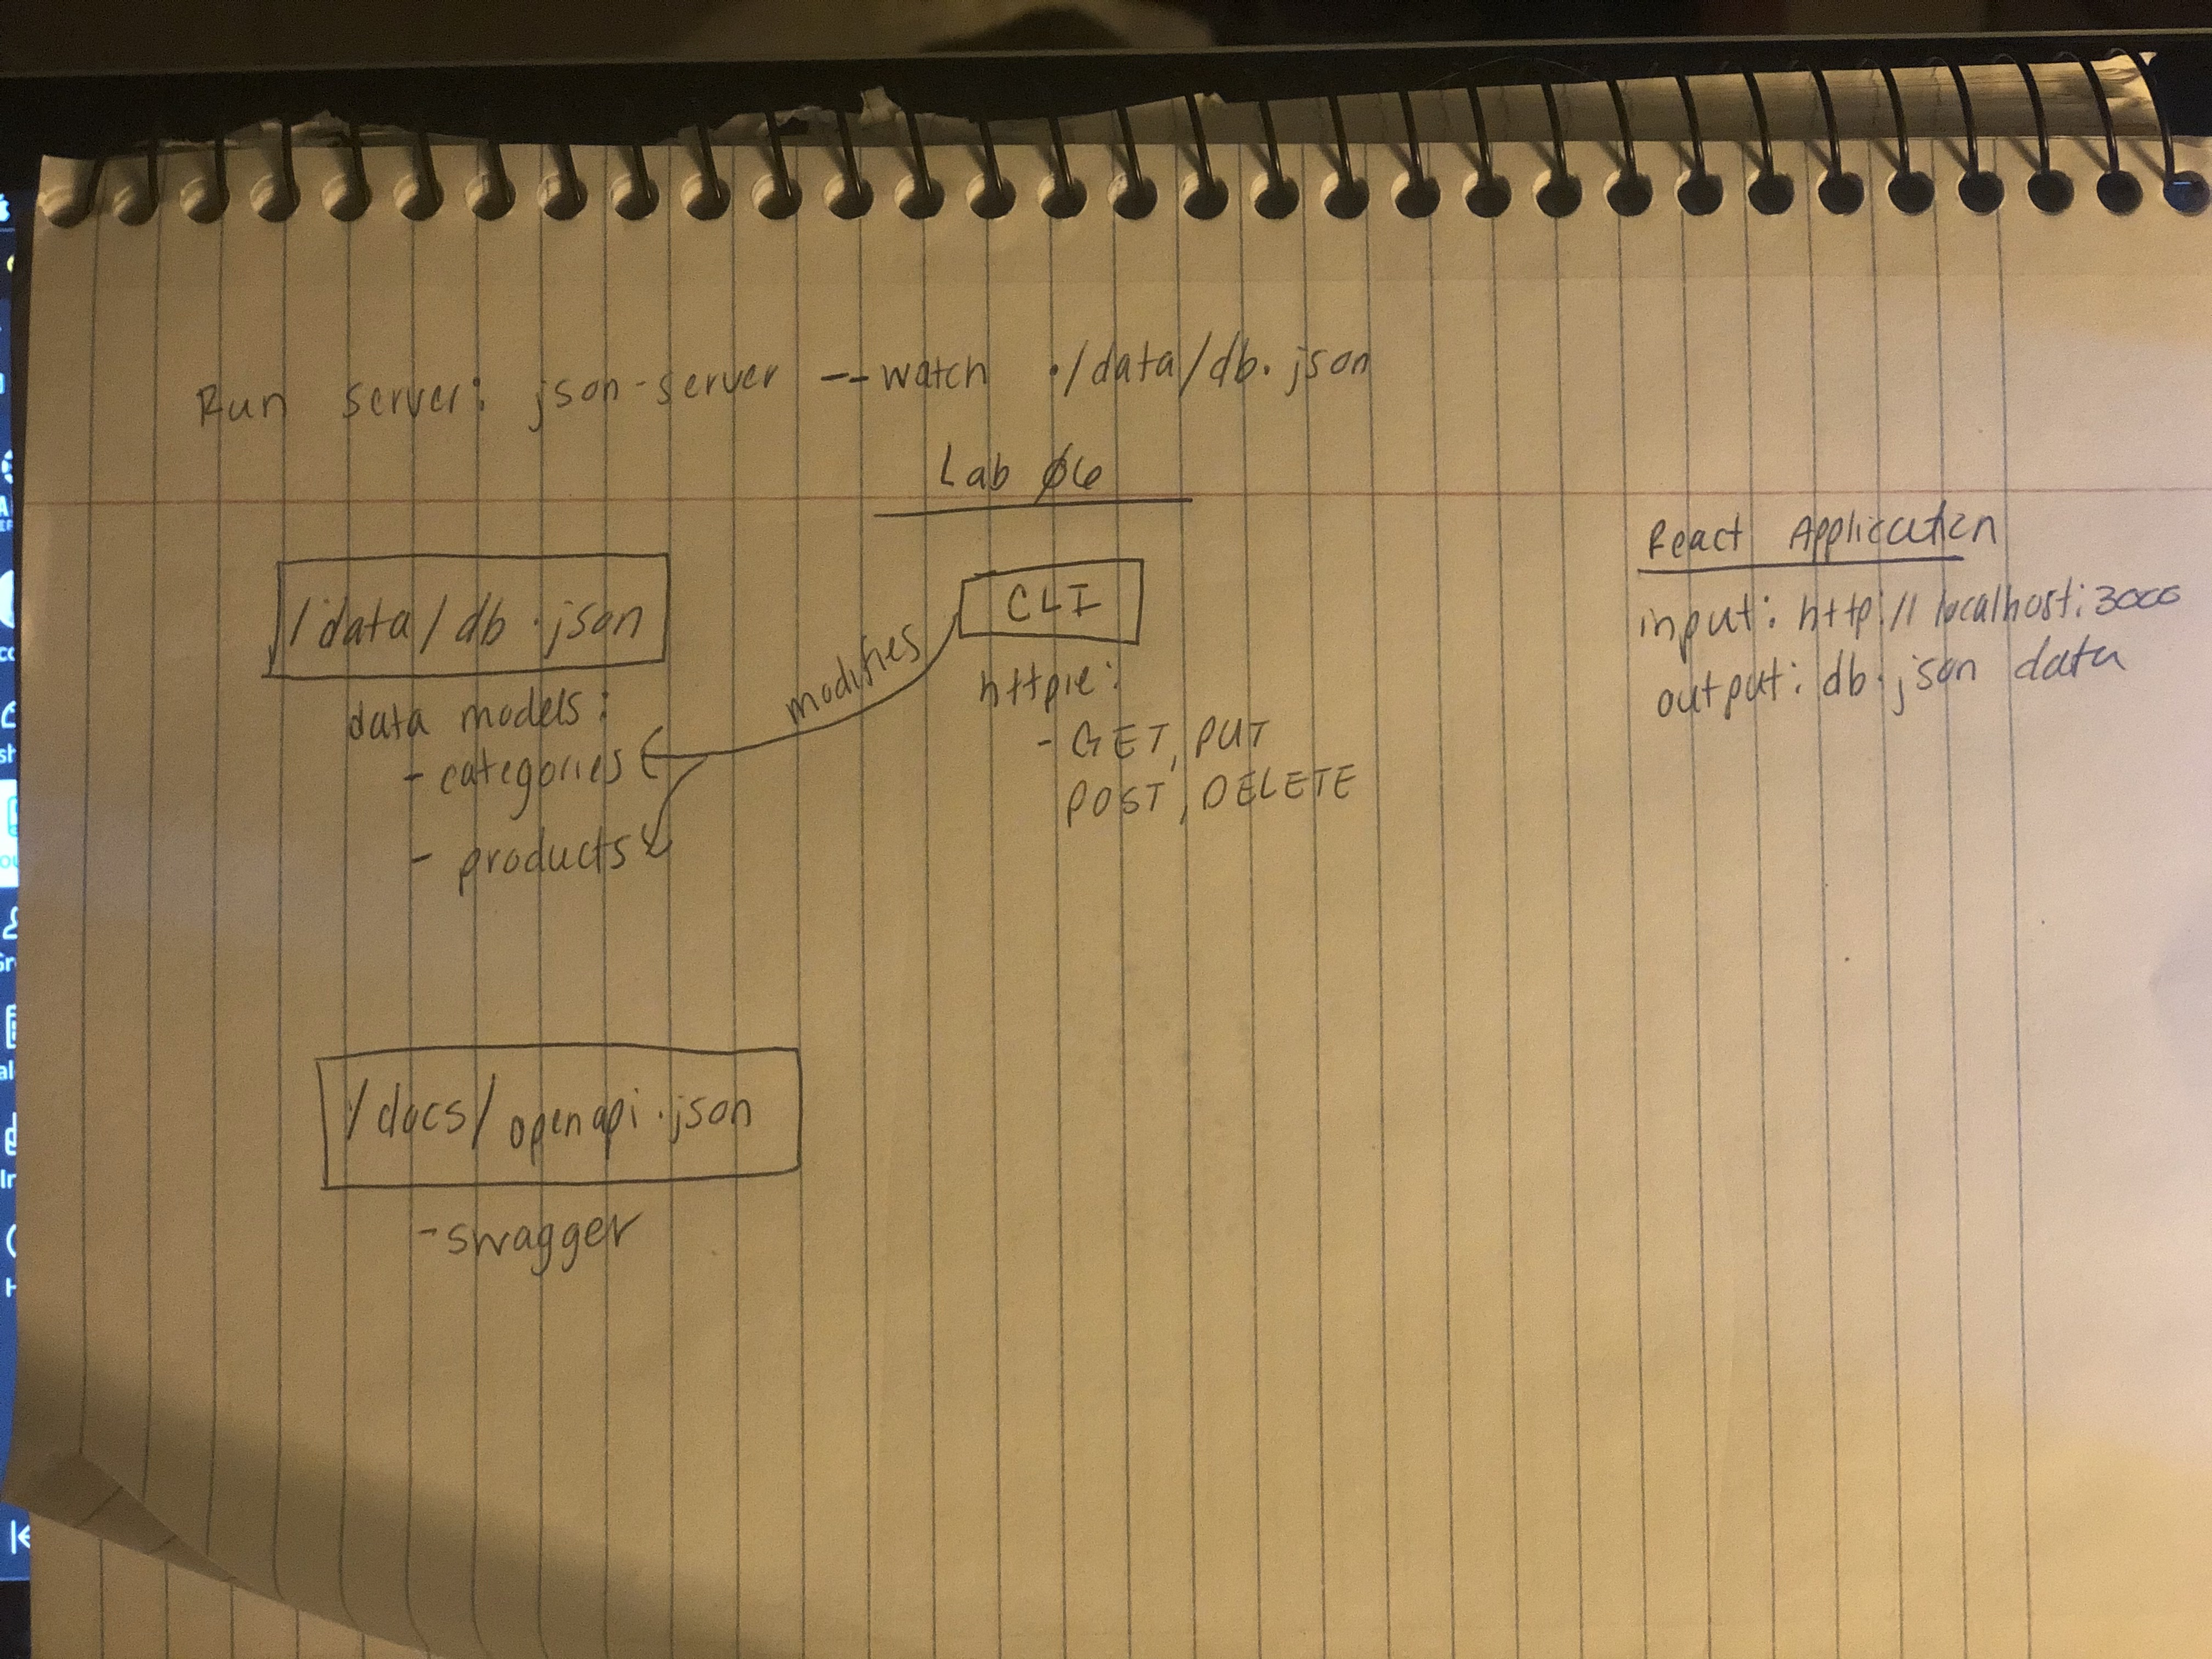 Run server: json-server --watch ./data/db.json
Lab 06
/data/db.json
data models:
- categories
- products
modifies
CLI
httpie:
- GET, PUT
POST, DELETE
React Application
input: http://localhost:3000
output: db.json data
/docs/openapi.json
- swagger